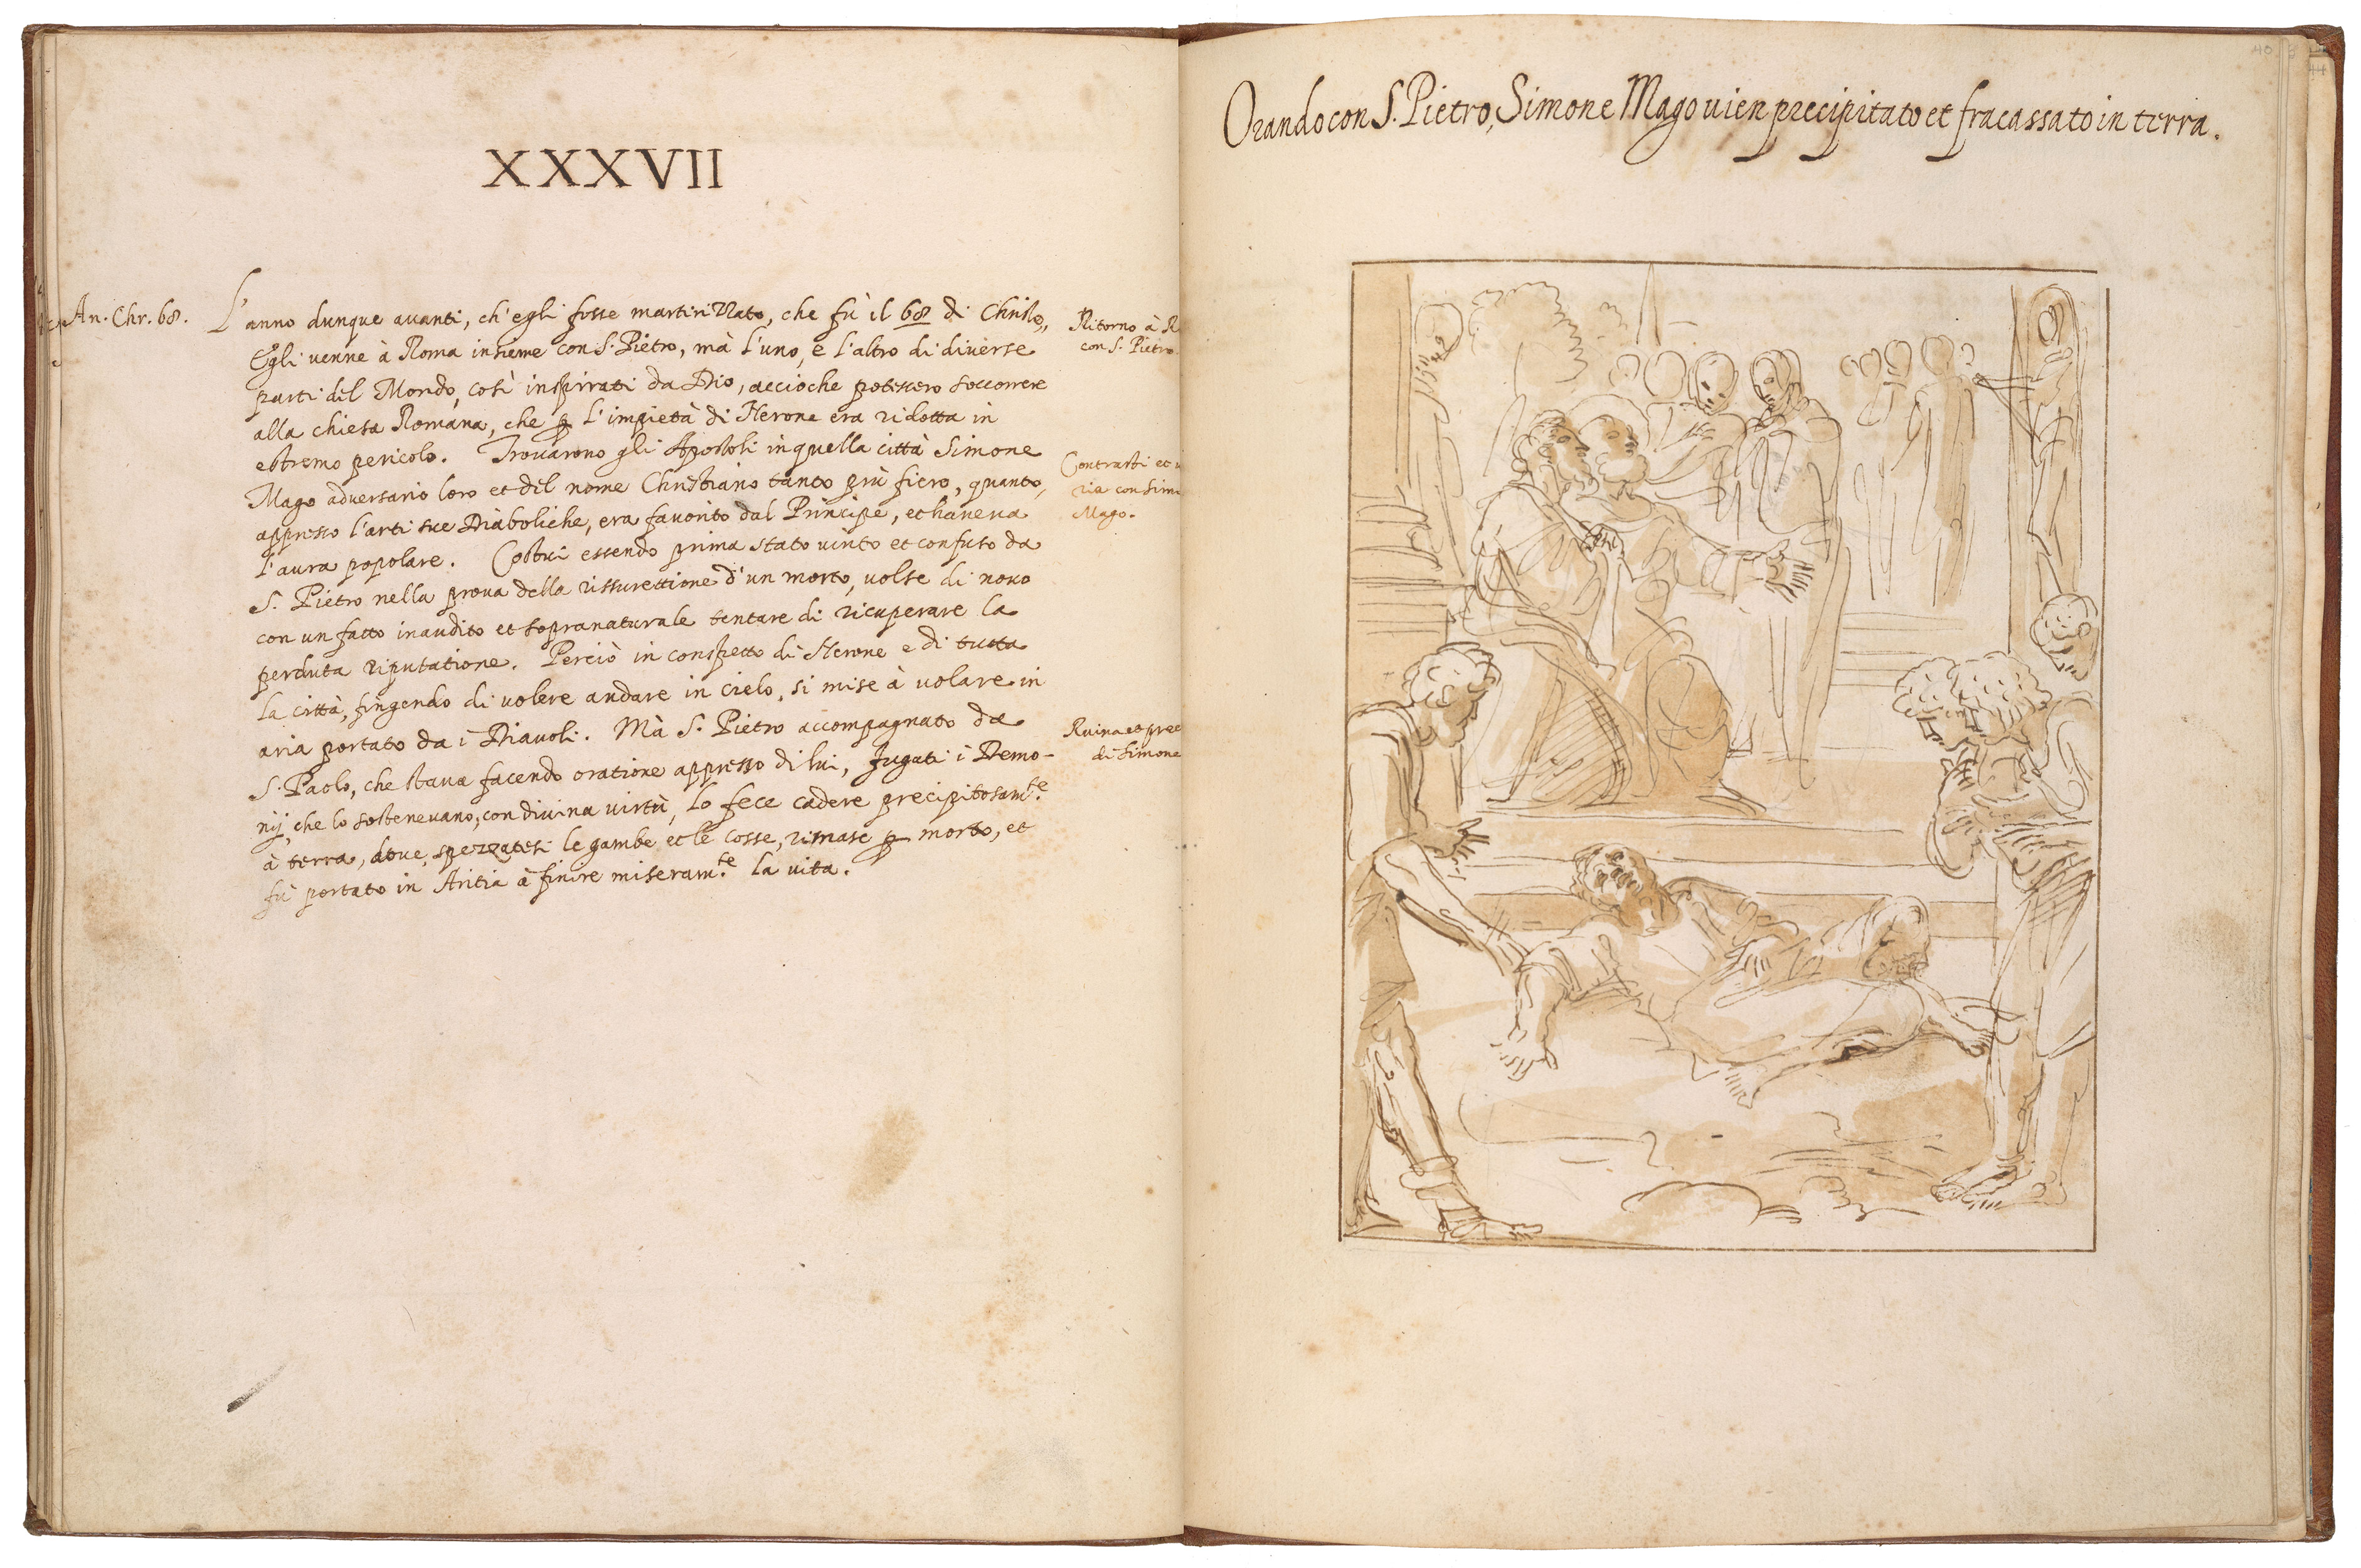 XXXVII
An. Chr. 68.
L'anno dunque auanti, ch'egli fosse martirizzato, che fù il 68 di Christo,
Egli uenne à Roma insieme con S. Pietro, mà l'uno, e l'altro di diuerse
parti del Mondo, così inspirati da Dio, accioche potessero soccorrere
alla chiesa Romana, che ꝑ l'impietà di Nerone era ridotta in
estremo pericolo. Trouarono gli Apostoli in quella città Simone
Mago aduersario loro et del nome Christiano tanto più fiero, quanto,
appresso l'arti sue Diaboliche, era fauorito dal Principe, et haueua
l'aura popolare. Costui essendo prima stato uinto et confuso da
S. Pietro nella proua della rissurettione d'un morto, uolse di nouo
con un fatto inaudito et sopranaturale tentare di ricuperare la
perduta riputatione. Perciò in conspetto di Nerone e di tutta
la città, fingendo di uolere andare in cielo, si mise à uolare in
aria portato da i Diauoli. Mà S. Pietro accompagnato da
S. Paolo, che staua facendo oratione appresso di lui, fugati i Demo-
nij, che lo sostenevano, con diuina uirtù, lo fece cadere precipitosam.te
à terra, doue, spezzatesi le gambe, et le cosse, rimase ꝑ morto, et
fù portato in Aritia à finire miseram.te la uita.
Ritorno à R
con S. Pietro
Contrasti et
ria con Sim
Mago.
Ruina et prec
di Simone
40
44
Orando con S. Pietro, Simone Mago uien precipitato et fracassato in terra.